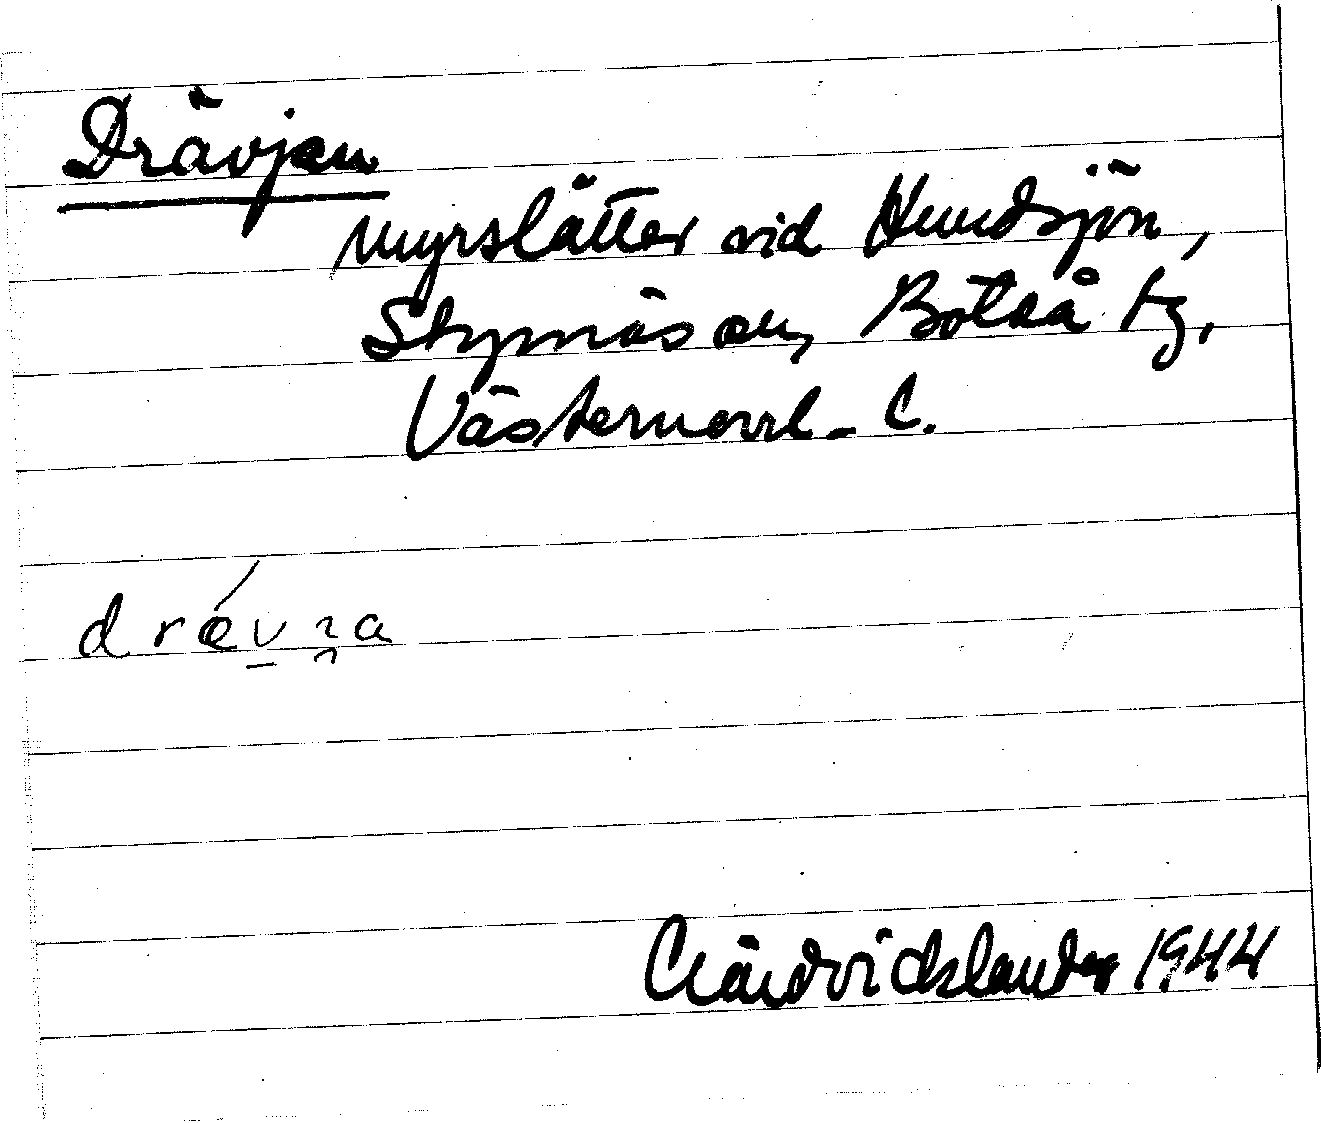 Drävjan
myrslätter vid Hundsjön,
Styrnäs sn, Boteå tg,
Västernorrl. l.
drævɿa
Nändvidslander 1944